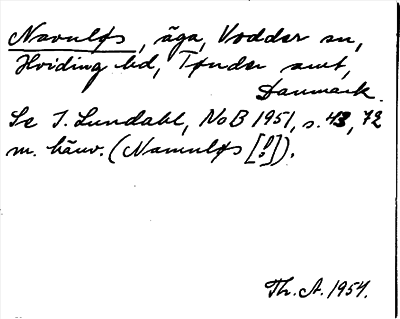 Navnløs, äga, Vodder sn,
Hviding hd, Tønder amt,
Danmark.
Se I. Lundahl, NoB 1951, s. 43, 72
m. hänv. (Navnløs [!]).
Th. A. 1954.